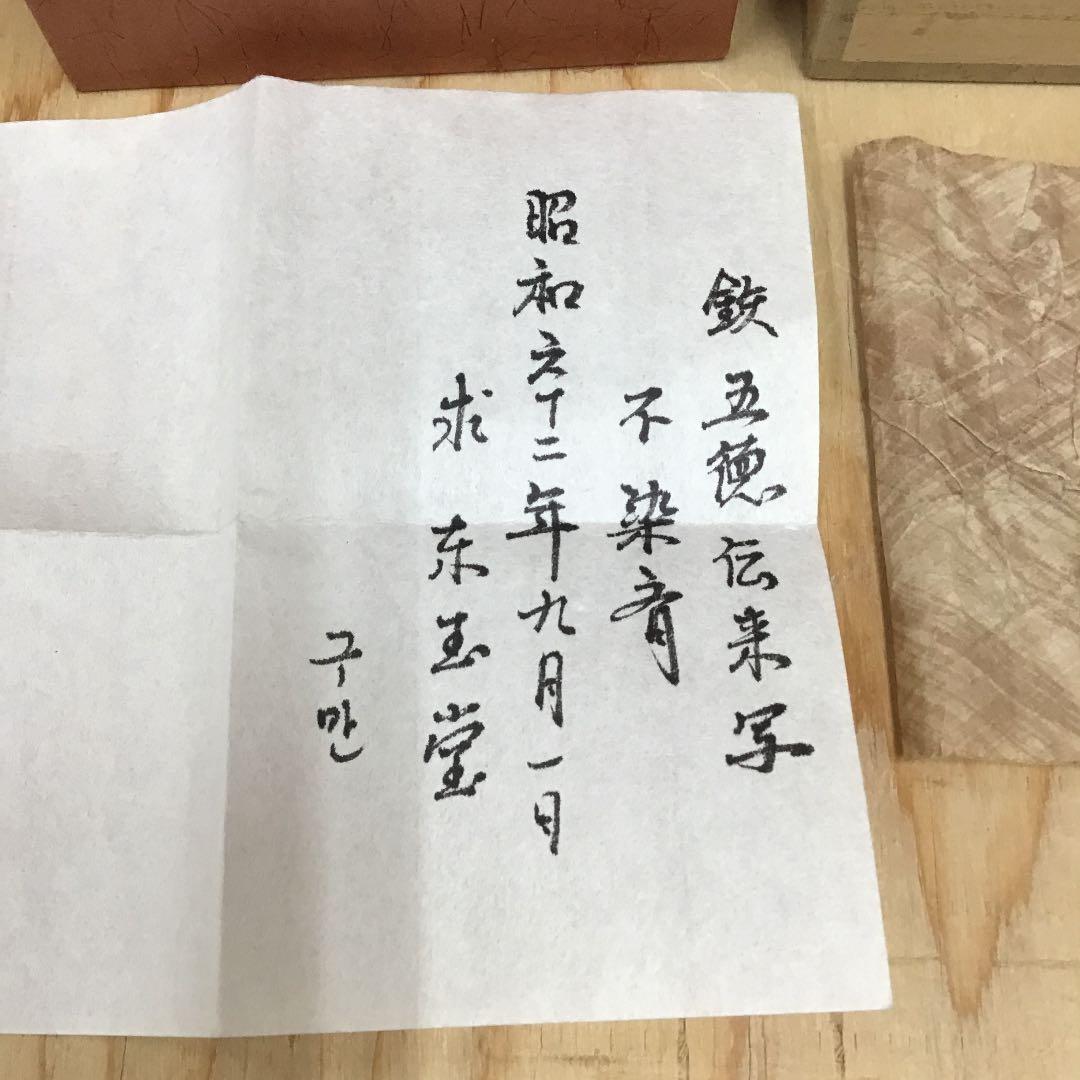 鉄五徳伝来写
不染斉
昭和六十二年九月一日
求 东玉堂
구만